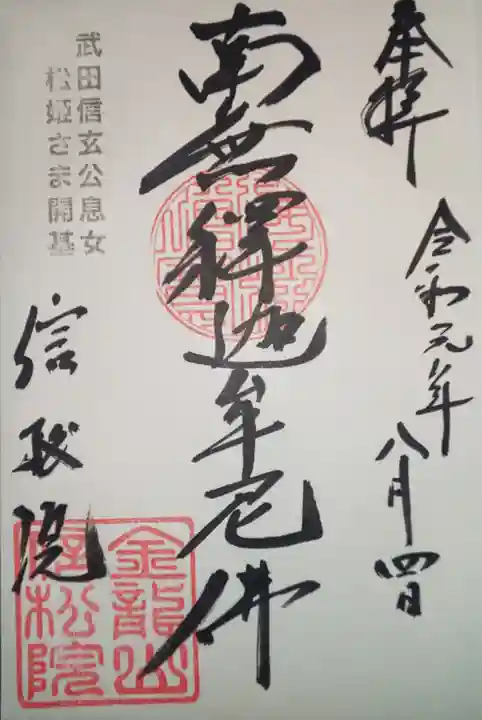 奉拝
令和元年
八月四日
南無釋迦牟尼佛
武田信玄公息女
松姫さま開基
信松院
金龍山
信松院